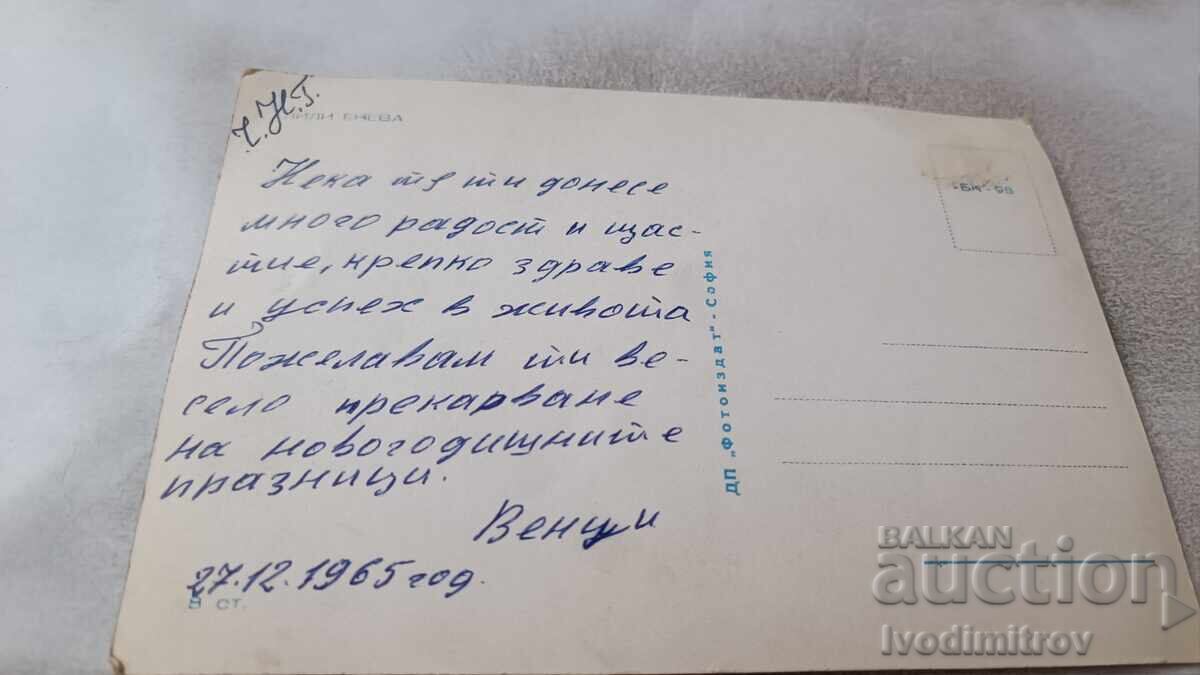 Ч.Н.Г.
ЛИЛИ ЕНЕВА
Нека тя ти донесе
много радост и щас-
тие, крепко здраве
и успех в живота
Пожелавам ти ве-
село прекарване
на новогодишните
празници.
Венци
27.12.1965 год.
8 СТ.
ДП „Фотоиздат" - София
БК - 98
BALKAN
auction
Ivodimitrov